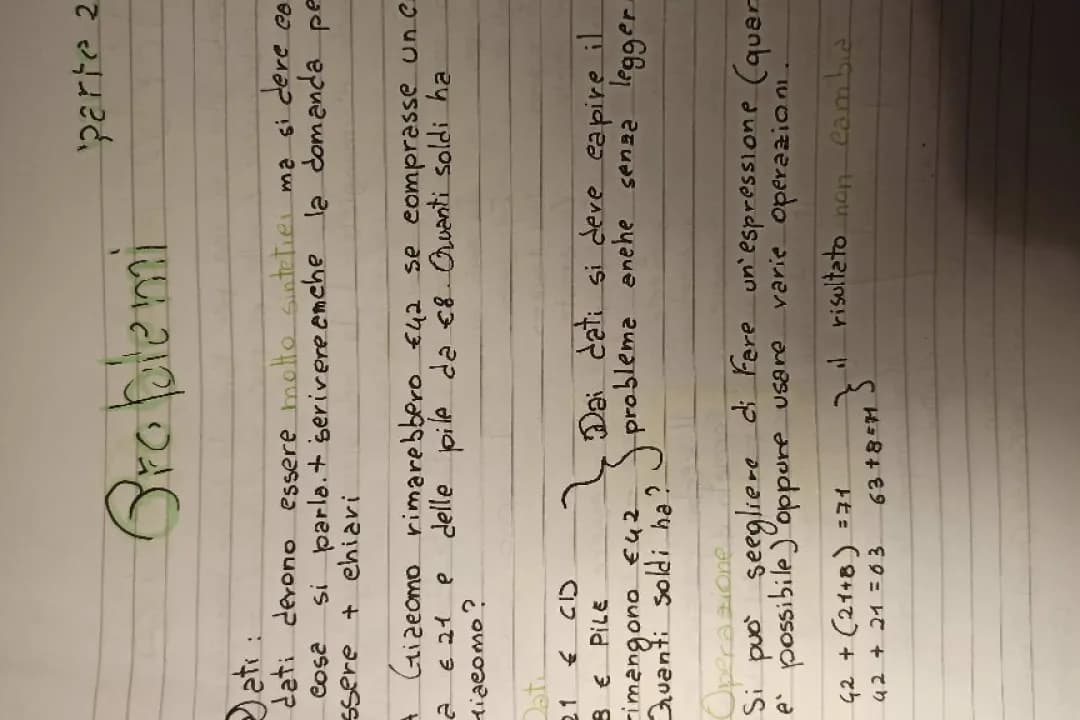 parte 2
Problemi
Dati:
dati devono essere molto sintetici ma si deve ca
cosa si parla. + scrivere anche la domanda pe
ssere + chiari
Giacomo rimarebbero €42 se comprasse un c
a € 21 e delle pile da €8. Quanti soldi ha
Giacomo?
Dati
21 € CD
8 € PILE
rimangono €42
Quanti soldi ha?
Dai dati si deve capire il
problema anche senza legger
Operazione
Si può scegliere di fare un'espressione (quan
è possibile) oppure usare varie operazioni.
42 + (21+8) = 71
42 + 21 = 63 63+8=71
il risultato non cambia